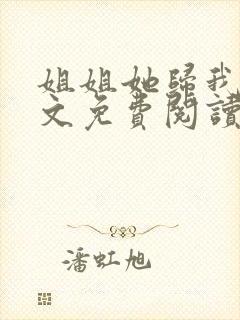 姐姐她歸我
文免費閱讀
潘虹旭